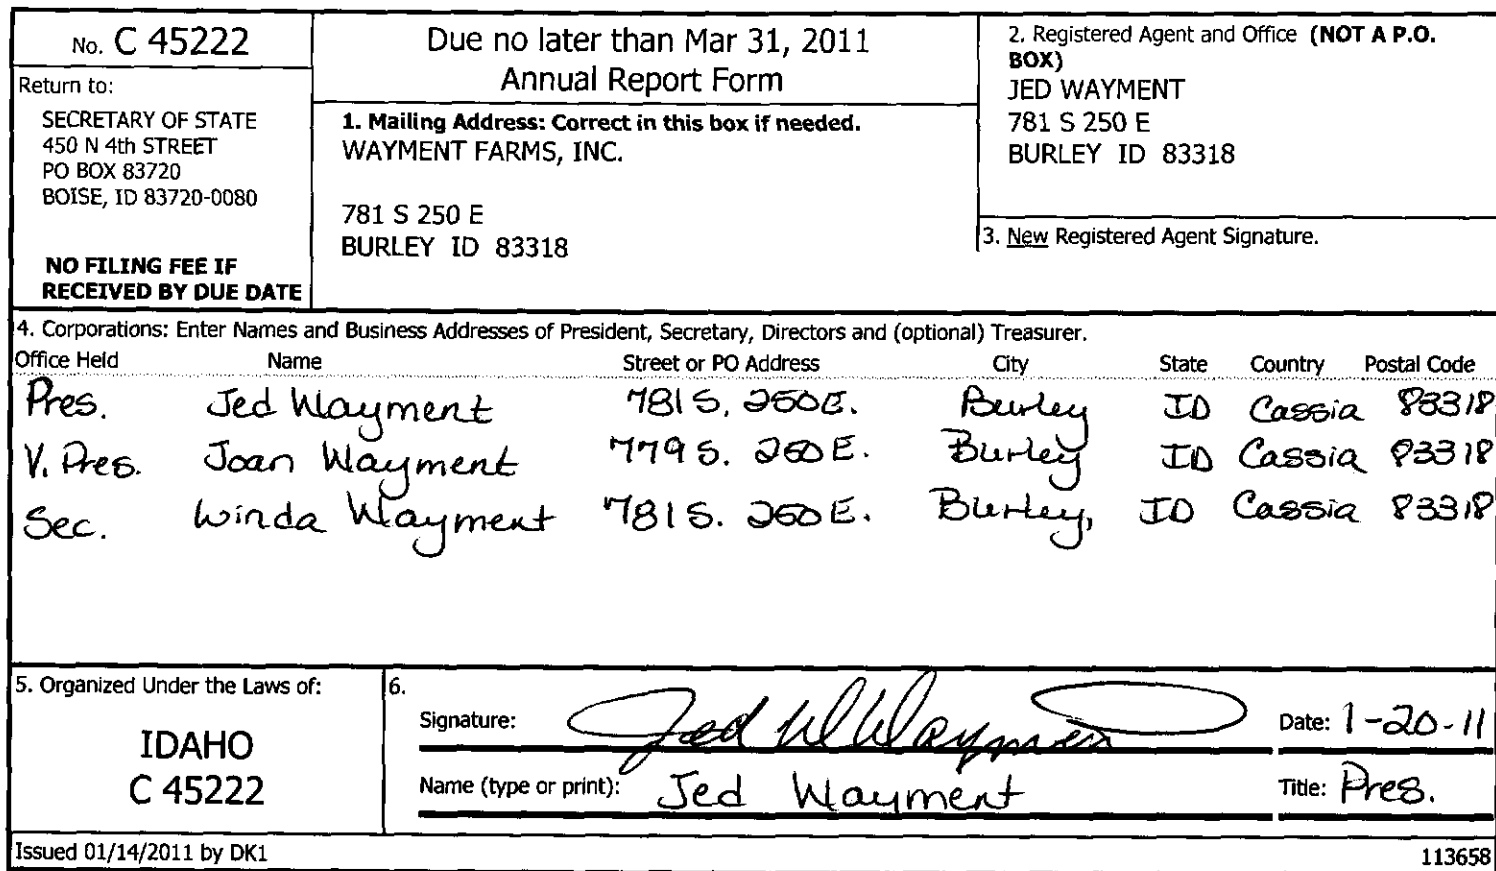 No. C 45222
Return to:
SECRETARY OF STATE
450 N 4th STREET
PO BOX 83720
BOISE, ID 83720-0080
NO FILING FEE IF
RECEIVED BY DUE DATE
Due no later than Mar 31, 2011
Annual Report Form
1. Mailing Address: Correct in this box if needed.
WAYMENT FARMS, INC.
781 S 250 E
BURLEY ID 83318
2. Registered Agent and Office (NOT A P.O.
BOX)
JED WAYMENT
781 S 250 E
BURLEY ID 83318
3. New Registered Agent Signature.
4. Corporations: Enter Names and Business Addresses of President, Secretary, Directors and (optional) Treasurer.
Office Held Name Street or PO Address City State Country Postal Code
Pres. Jed Wayment 781 S. 250 E. Burley ID Cassia 83318
V. Pres. Joan Wayment 779 S. 250 E. Burley ID Cassia 83318
Sec. Linda Wayment 781 S. 250 E. Burley, ID Cassia 83318
5. Organized Under the Laws of:
IDAHO
C 45222
6.
Signature: Jed W Wayment Date: 1-20-11
Name (type or print): Jed Wayment Title: Pres.
Issued 01/14/2011 by DK1 113658